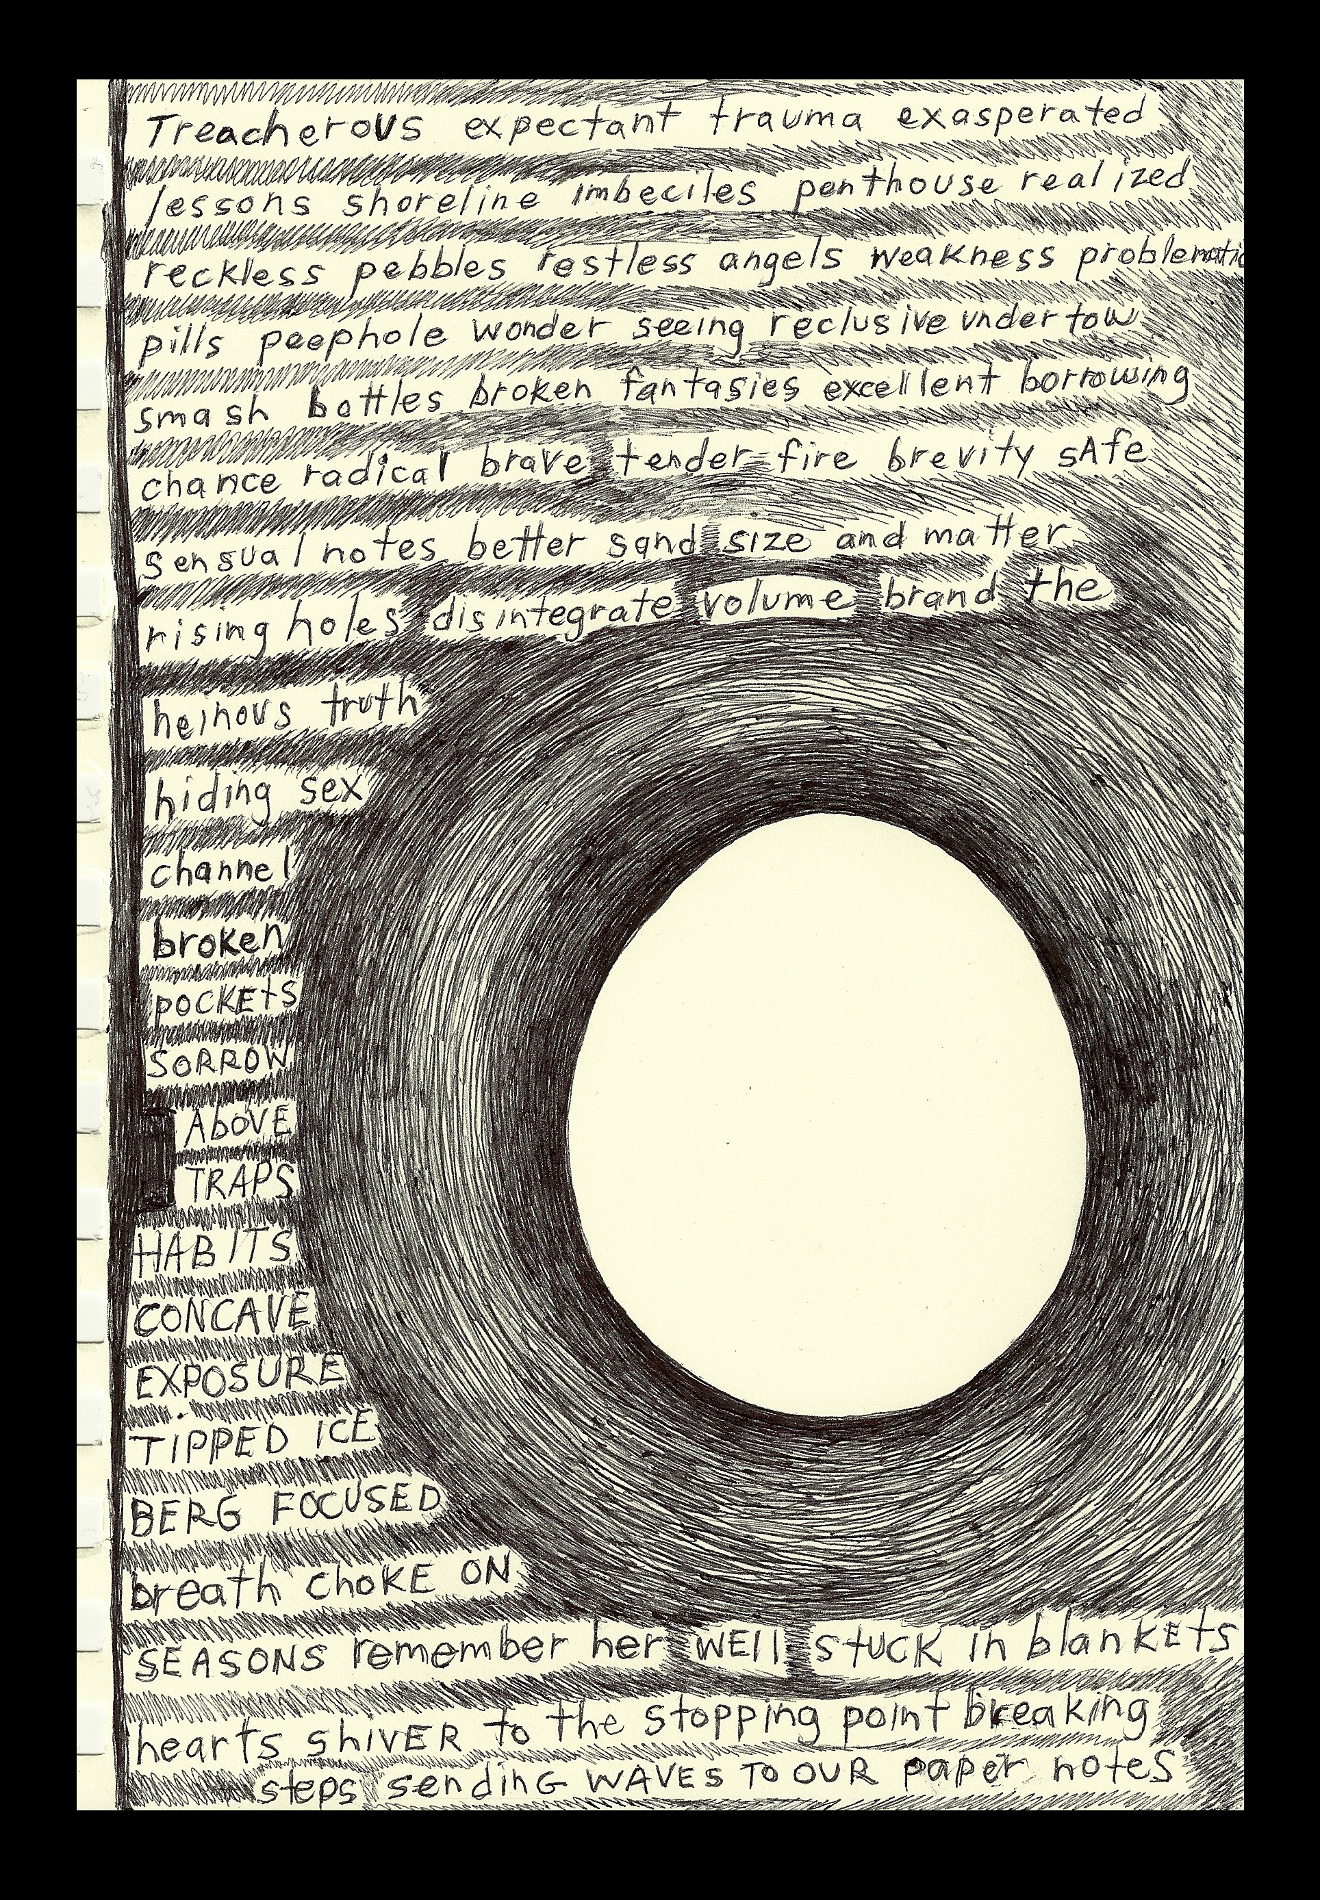 Treacherous expectant trauma exasperated
lessons shoreline imbeciles penthouse realized
reckless pebbles restless angels weakness problematic
pills peephole wonder seeing reclusive undertow
smash bottles broken fantasies excellent borrowing
chance radical brave tender fire brevity sAfe
sensual notes better sand size and matter
rising holes disintegrate volume brand the
heinous truth
hiding sex
channel
broken
pOCKEtS
SORROW
AboVE
TRAPS
HABITS
CONCAVE
EXPOSURE
TiPPED ICE
BERG FOCUSED
breath CHOKE ON
SEASONS remember her WEll StUCK in blanKEtS
hearts SHiVER to the stopping point breaking
steps sendinG WAVES TO OUR paper notes